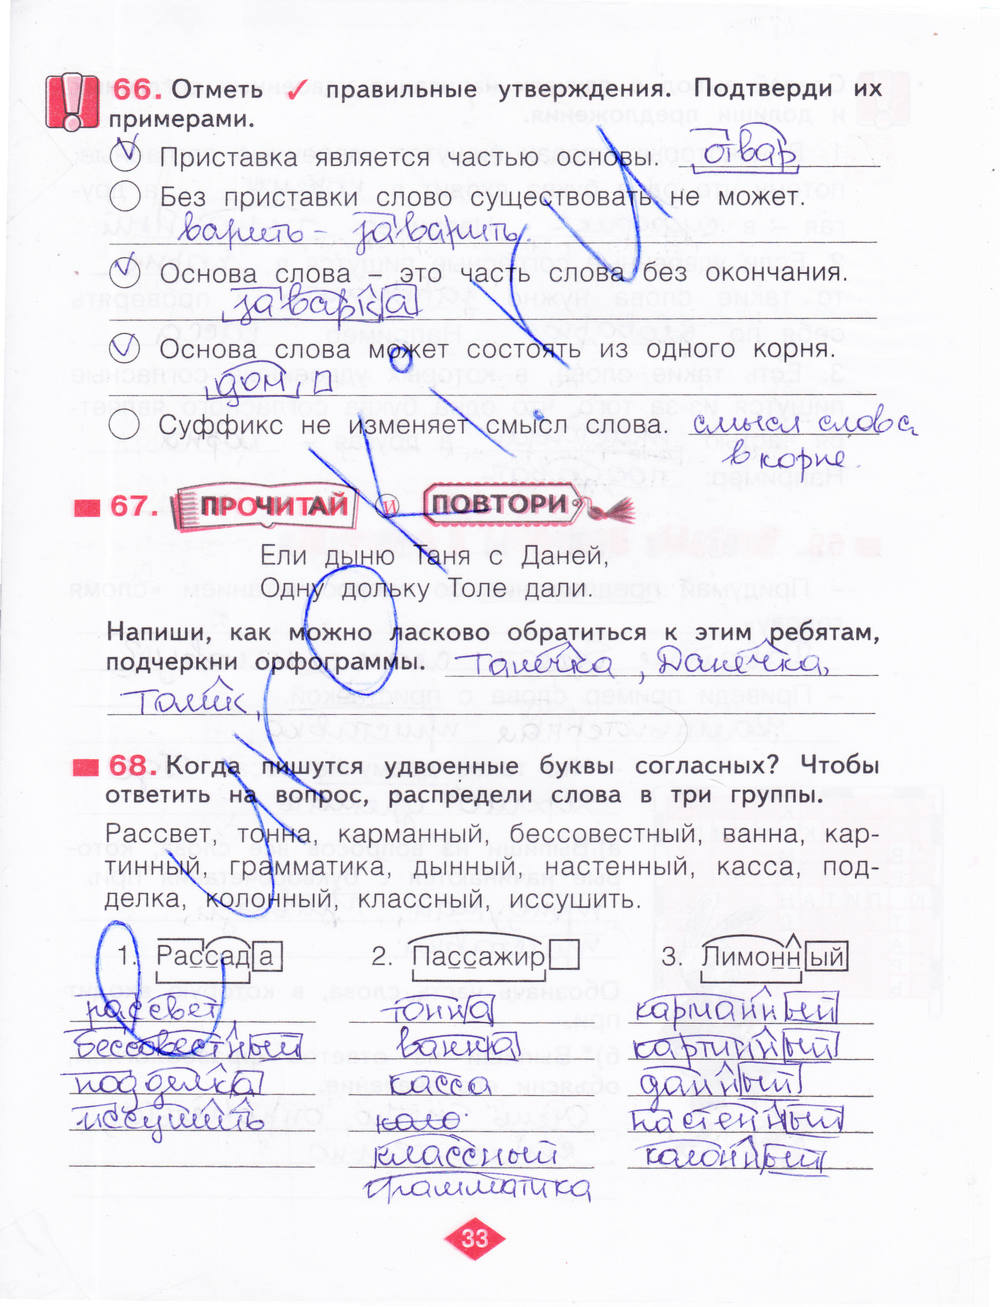 66. Отметь ✓ правильные утверждения. Подтверди их
примерами.
Приставка является частью основы. отвар
Без приставки слово существовать не может.
варить - заварить.
Основа слова – это часть слова без окончания.
заварка
Основа слова может состоять из одного корня.
дом,
Суффикс не изменяет смысл слова. смысл слова
в корне
67. ПРОЧИТАЙ И ПОВТОРИ
Ели дыню Таня с Даней,
Одну дольку Толе дали.
Напиши, как можно ласково обратиться к этим ребятам,
подчеркни орфограммы. Танечка, Данечка,
Толик,
68. Когда пишутся удвоенные буквы согласных? Чтобы
ответить на вопрос, распредели слова в три группы.
Рассвет, тонна, карманный, бессовестный, ванна, кар-
тинный, грамматика, дынный, настенный, касса, под-
делка, колонный, классный, иссушить.
1. Рассада 2. Пассажир 3. Лимонный
рассвет тонна карманный
бессовестный ванна картинный
подделка касса
иссушить коло настенный
классный колонный
грамматика
33